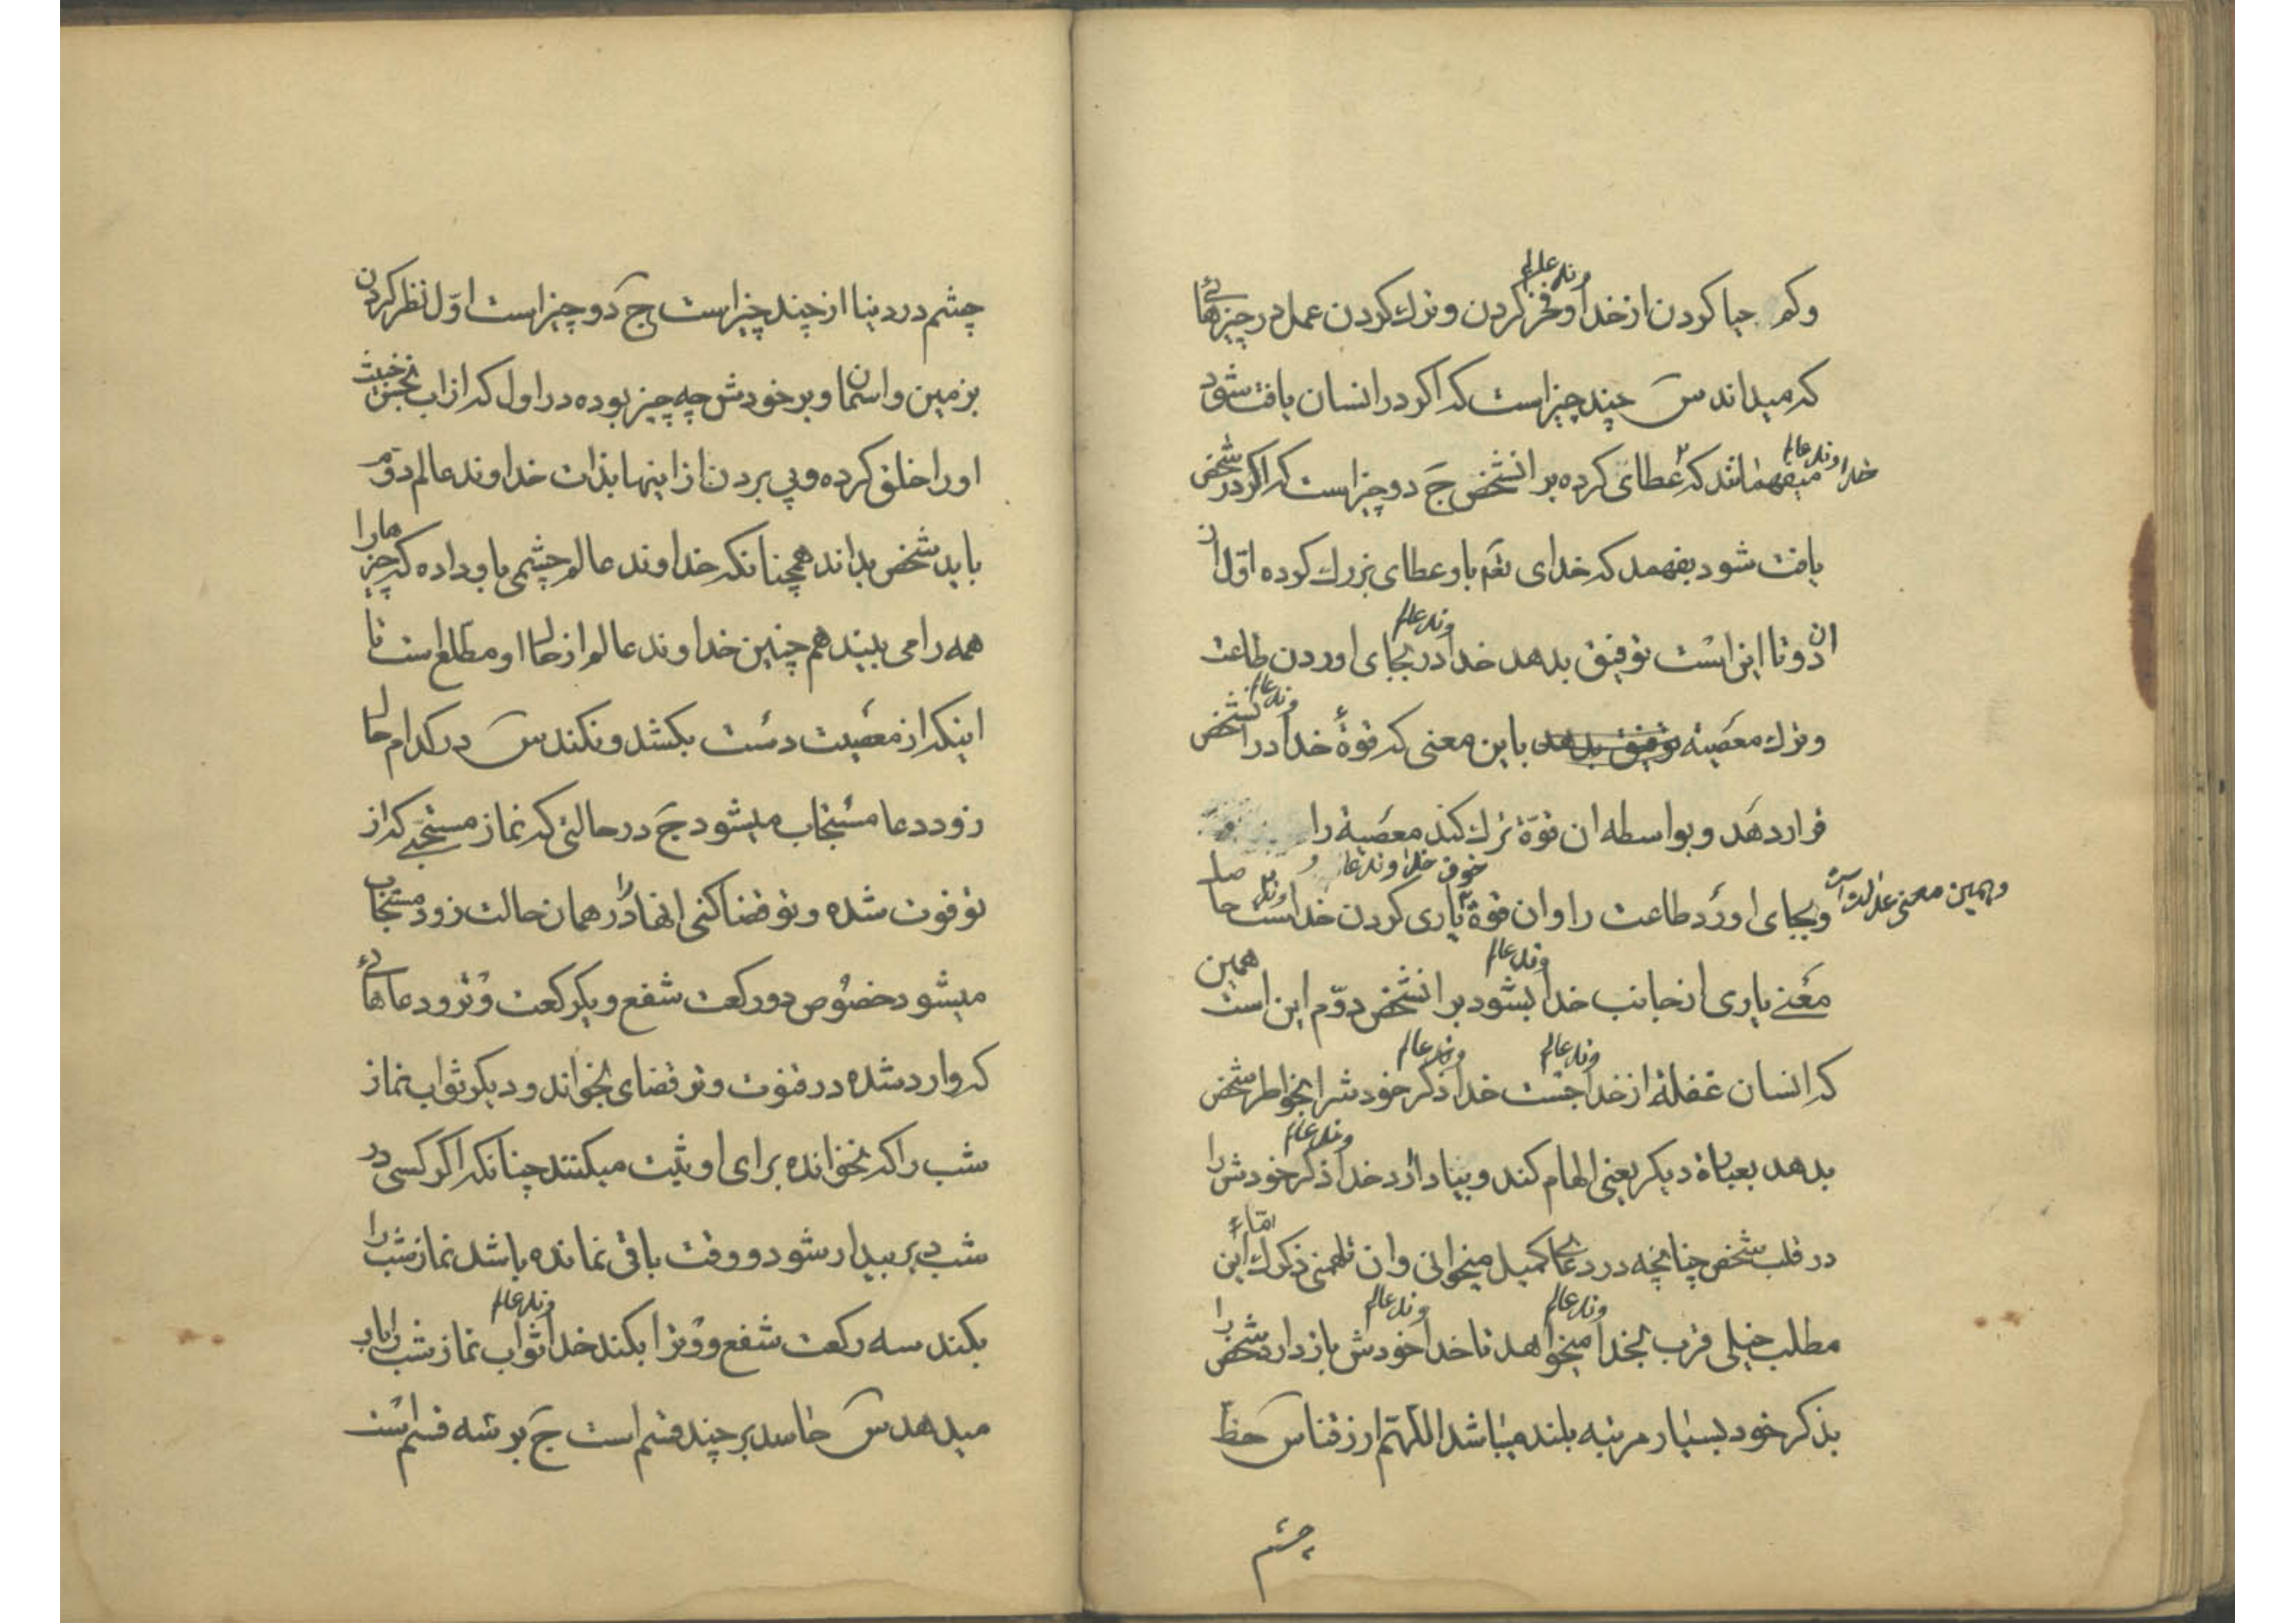 وکم حیا کردن از خداوند عالم و فخر کردن و ترک کردن عمل در چیزهائی
که میداند س چند چیز است که اکر در انسان یافت شود
خداوند عالم میفهمانند که عطای کرده بر انشخص ج دو چیز است که اکر در شخص
یافت شود بفهمد که خدای تعم باو عطای بزرک کرده اوّل از
ان دوتا این است توفیق بدهد خداوند عالم در بجای اوردن طاعت
و ترک معصیة توفیق بدهد باین معنی که قوهٔ خداوند عالم در انشخص
قرار دهد و بواسطه ان قوّة ترک کند معصیة را خوف خداوند عالم و
وهمین معنی عدالت است وبجای اورد طاعت را و ان قوة یاری کردن خداوند است حاصل
معنے یاری از جانب خداوند عالم بشود بر انشخص دوّم این است همین
که انسان غفلة از خداوند عالم جست خداوند عالم ذکر خودشرا بخواطر شخص
بدهد بعبارة دیکر یعنی الهام کند و بیاد ارد خداوند عالم ذکر خودش را
در قلب شخص چنانچه در دعای کمیل میخوانی و ان تلهمنی ذکرک امّا این
مطلب خیلی قرب بخداوند عالم میخواهد تا خداوند عالم خودش بازدارد شخص را
بذکر خود بسیار مرتبه بلند میباشد اللّهمّ ارزقنا س حظّ
چشم
چشم در دینا از چند چیز است ج دو چیز است اوّل نظر کردن
بزمین و اسمان و بر خودش چه چیز بوده در اول که از اب نجس خبث
اورا خلق کرده و پی بردن از اینها بذات خداوند عالم دوّم
باید شخص بداند همچنانکه خداوند عالم چشمی باو داده که چیزها را
همه را می بیند هم چنین خداوند عالم از حال او مطلع است تا
اینکه از معصیت دست بکشد و نکند س در کدام حال
زود دعا مستجاب میشود ج در حالتی که نماز مستحبّے که از
تو فوت شده و تو قضا کنی انها را در همان حالت زود مستجاب
میشود خصوص دو رکعت شفع و یکرکعت وتر و دعاهائی
که وارد شده در قنوت وتر قضای بخواند و دیکر ثواب نماز
شب را که نخوانده برای او ثبت میکنند چنانکه اکر کسی در
شب دیر بیدار شود و وقت باقی نمانده باشد نماز شب را
بکند سه رکعت شفع و وتر را بکند خداوند عالم ثواب نماز شب را باو
میدهد س حاسد بر چند قسم است ج بر سه قسم است